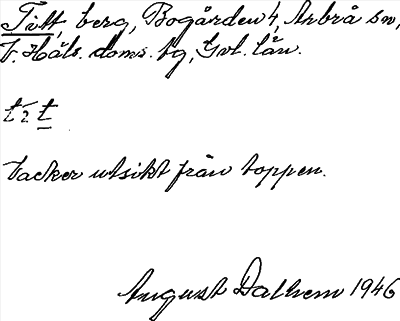 Titt, berg, Bogården 4, Arbrå sn,
V. Häls. doms. tg, Gvl. län.
tit
Vacker utsikt från toppen.
August Dalhem 1946